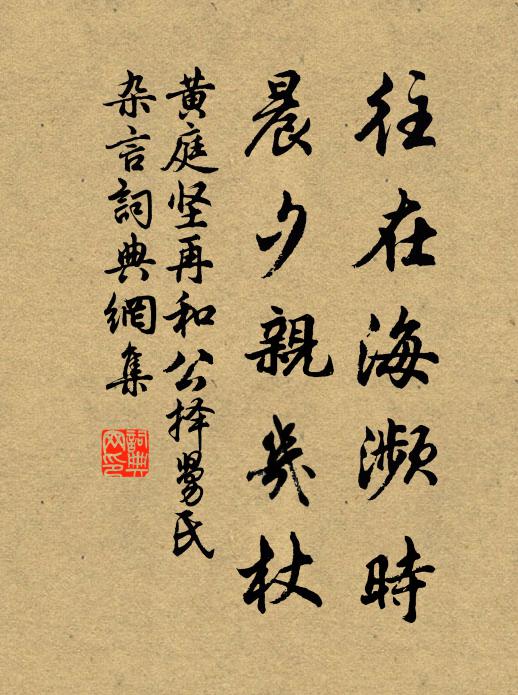 往在海濒時
晨夕親几杖
黄庭坚再和公择舅氏
杂言詞典網集
詞典网印